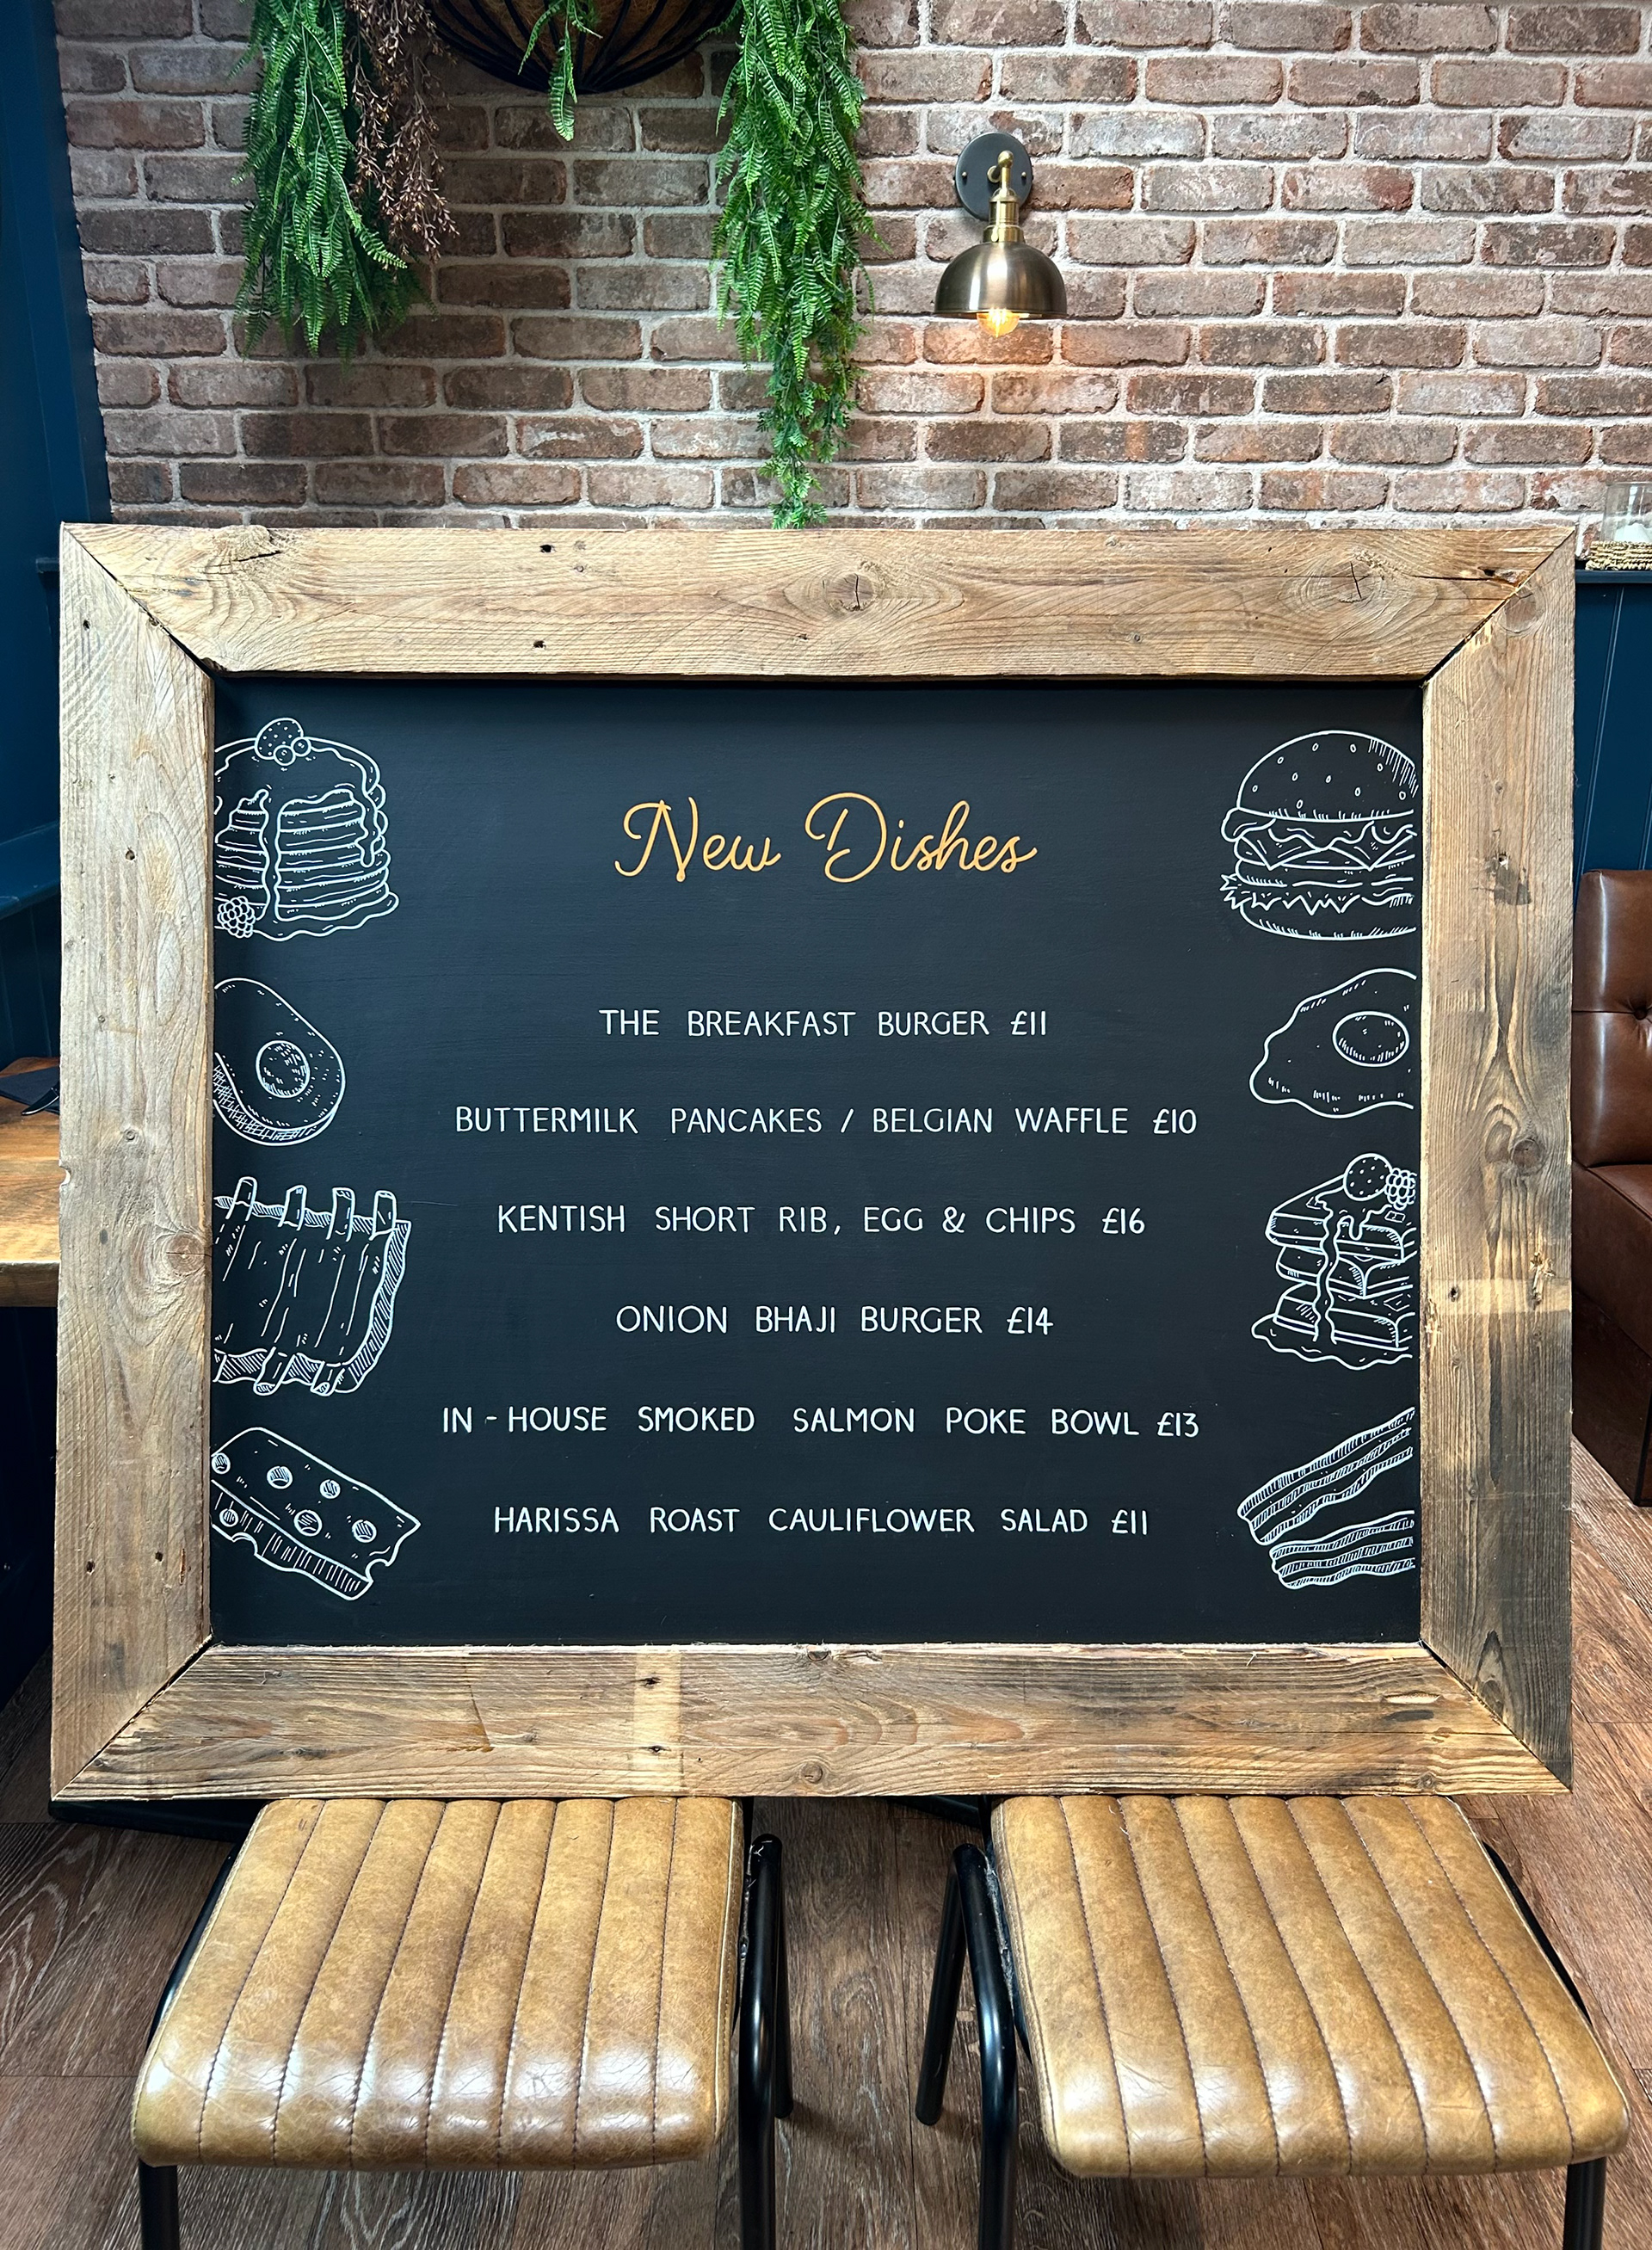 New Dishes
THE BREAKFAST BURGER £11
BUTTERMILK PANCAKES / BELGIAN WAFFLE £10
KENTISH SHORT RIB, EGG & CHIPS £16
ONION BHAJI BURGER £14
IN-HOUSE SMOKED SALMON POKE BOWL £13
HARISSA ROAST CAULIFLOWER SALAD £11